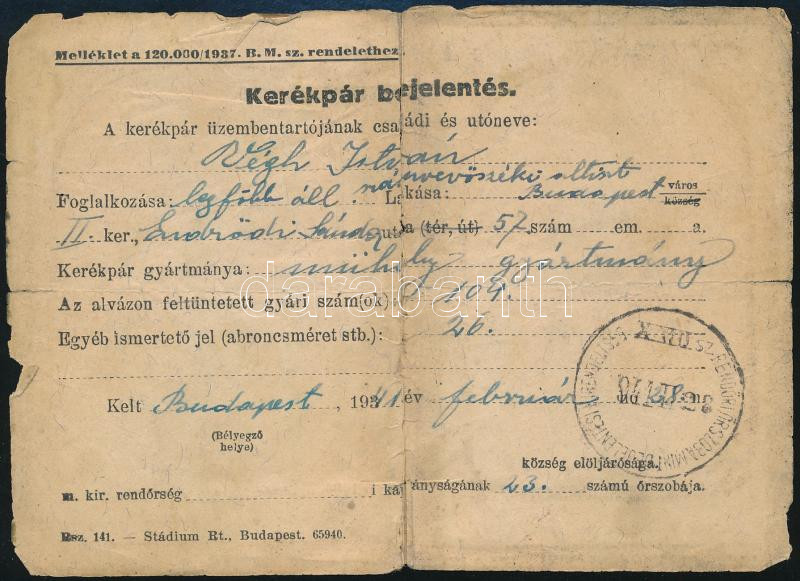 Melléklet a 120.000/1937. B. M. sz. rendelethez.
Kerékpár bejelentés.
A kerékpár üzembentartójának csa ádi és utóneve:
Végh István
Foglalkozása: legfőbb áll. számvevőszéki altiszt La kása: Budapest város
község
II ker., Endrődi Sándor utca (tér, út) 57. szám em. a.
Kerékpár gyártmánya: műhely gyártmány
Az alvázon feltüntetett gyári szám(ok) 109.
Egyéb ismertető jel (abroncsméret stb.): 26.
Kelt Budapest, 1941 év február hó 28-n.
(Bélyegző
helye)
község elöljárósága.
m. kir. rendőrség i ka ányságának 23. számú őrszobája.
Rsz. 141. — Stádium Rt., Budapest. 65940.
darabanth